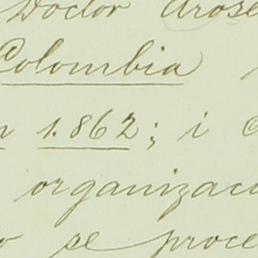 Doctor Arose
Colombia
n 1.862; i
organizaci
o se proce